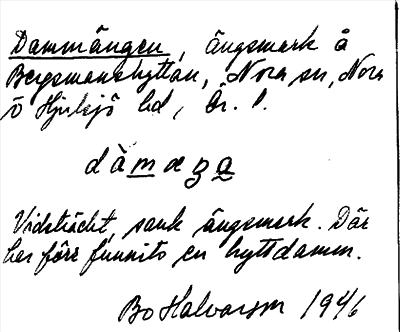 Dammängen, ängsmark å
Bergsmanshyttan, Nora sn, Nora
o Hjulsjö bd, Ör. l.
dàmæŋa
Vidsträckt, sank ängsmark. Där
har förr funnits en hyttdamm.
Bo Halvarson 1946